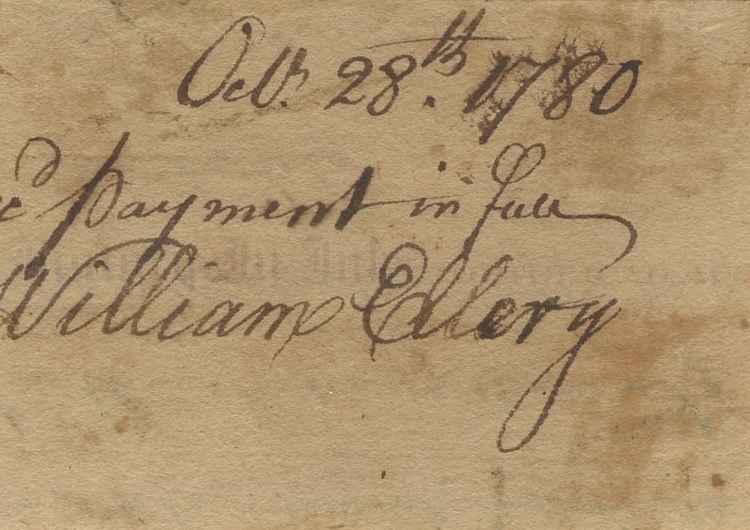 Octr. 28.th 1780
cd payment in full
William Ellery